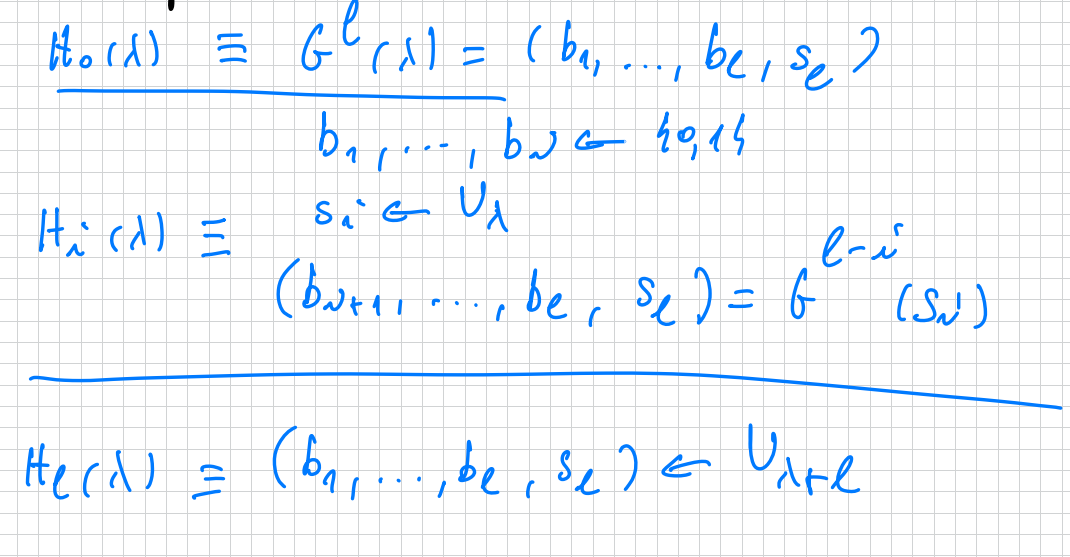 H₀(λ) ≡ G^l(λ) = (b₁, ..., bₗ, sₗ)
b₁, ..., bᵢ ← {0,1}
sᵢ ← U_λ
Hᵢ(λ) ≡
(bᵢ₊₁, ..., bₗ, sₗ) = G^{l-i}(sᵢ)
Hₗ(λ) ≡ (b₁, ..., bₗ, sₗ) ← U_{λ+l}